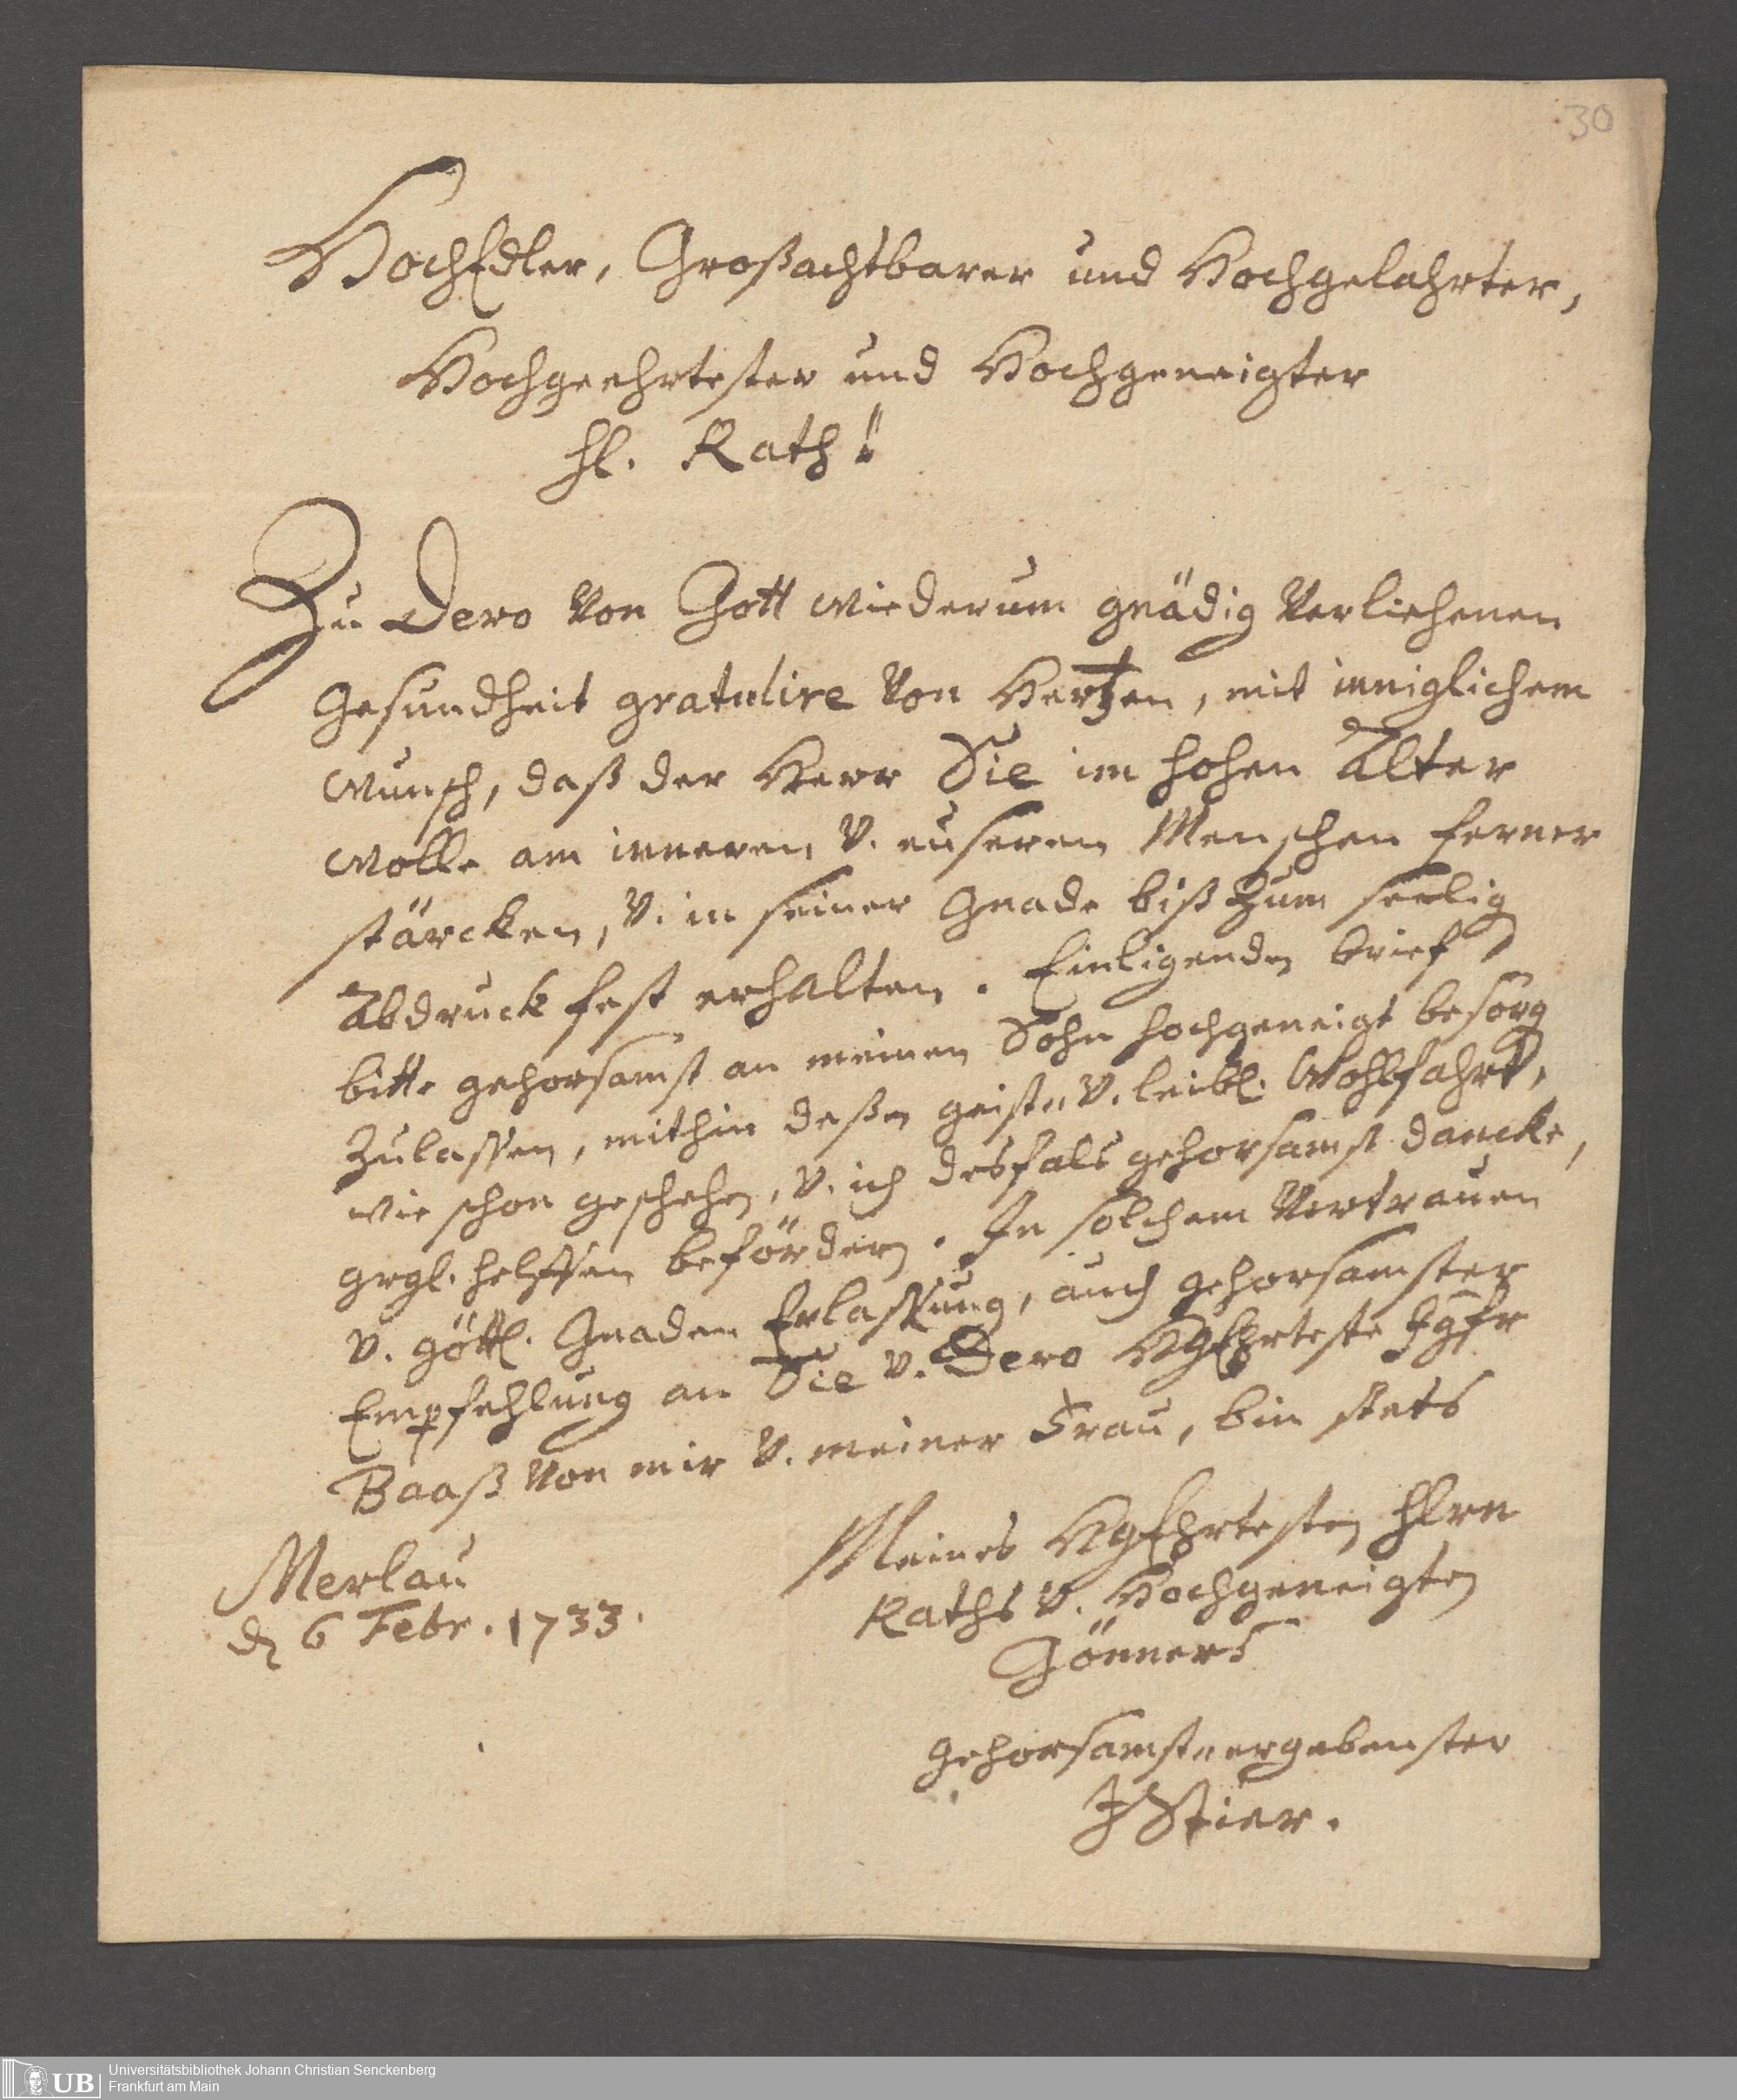 30
HochEdler, Großachtbarer und Hochgelahrter,
Hochgeehrtester und Hochgeneigter
H. Rath!
Zu Dero von Gott wiederum gnädig verliehenen
Gesundheit gratulire von Hertzen, mit inniglichem
wunsch, daß der Herr Sie im hohen Alter
wolle am inneren v. euseren Menschen ferner
stärcken, v. in seiner Gnade biß zum seelig
Abdruck fest erhalten. Einligenden brief
bitte gehorsamst an meinen Sohn hochgeneigt besorg
zulassen, mithin deßen geist- v. leibl. Wohlfahrt,
wie schon geschehen, v. ich desfals gehorsamst dancke,
grgl. helffen befördern. In solchem Vertrauen
v. göttl. Gnaden Erlassung, auch gehorsamster
Empfehlung an Sie v. Dero HgEhrteste Jgfr
Baaß von mir v. meiner Frau, bin stets
Meines HgEhrtesten Hrn
Raths v. Hochgeneigten
Gönners
Merlau
d 6 Febr. 1733.
gehorsamst-ergebenster
Stier.
UB
Universitätsbibliothek Johann Christian Senckenberg
Frankfurt am Main